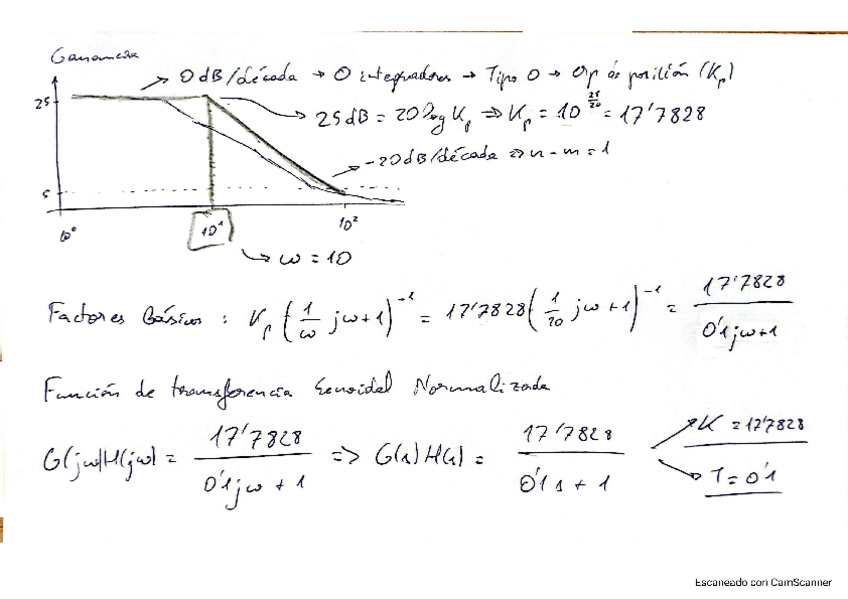 Ganancia
0 dB/década → 0 integradores → Tipo 0 → Op de posición (Kp)
25
25 dB = 20 log Kp ⇒ Kp = 10^(25/20) = 17'7828
-20 dB/década ⇒ n - m = 1
5
10⁰ 10¹ 10²
ω = 10
Factores básicos : Kp (1/ω jω+1)⁻¹ = 17'7828 (1/10 jω+1)⁻¹ = 17'7828 / 0'1jω+1
Función de transferencia Senoidal Normalizada
G(jω)H(jω) = 17'7828 / 0'1jω + 1 => G(s)H(s) = 17'7828 / 0'1 s + 1
K = 17'7828
T = 0'1
Escaneado con CamScanner